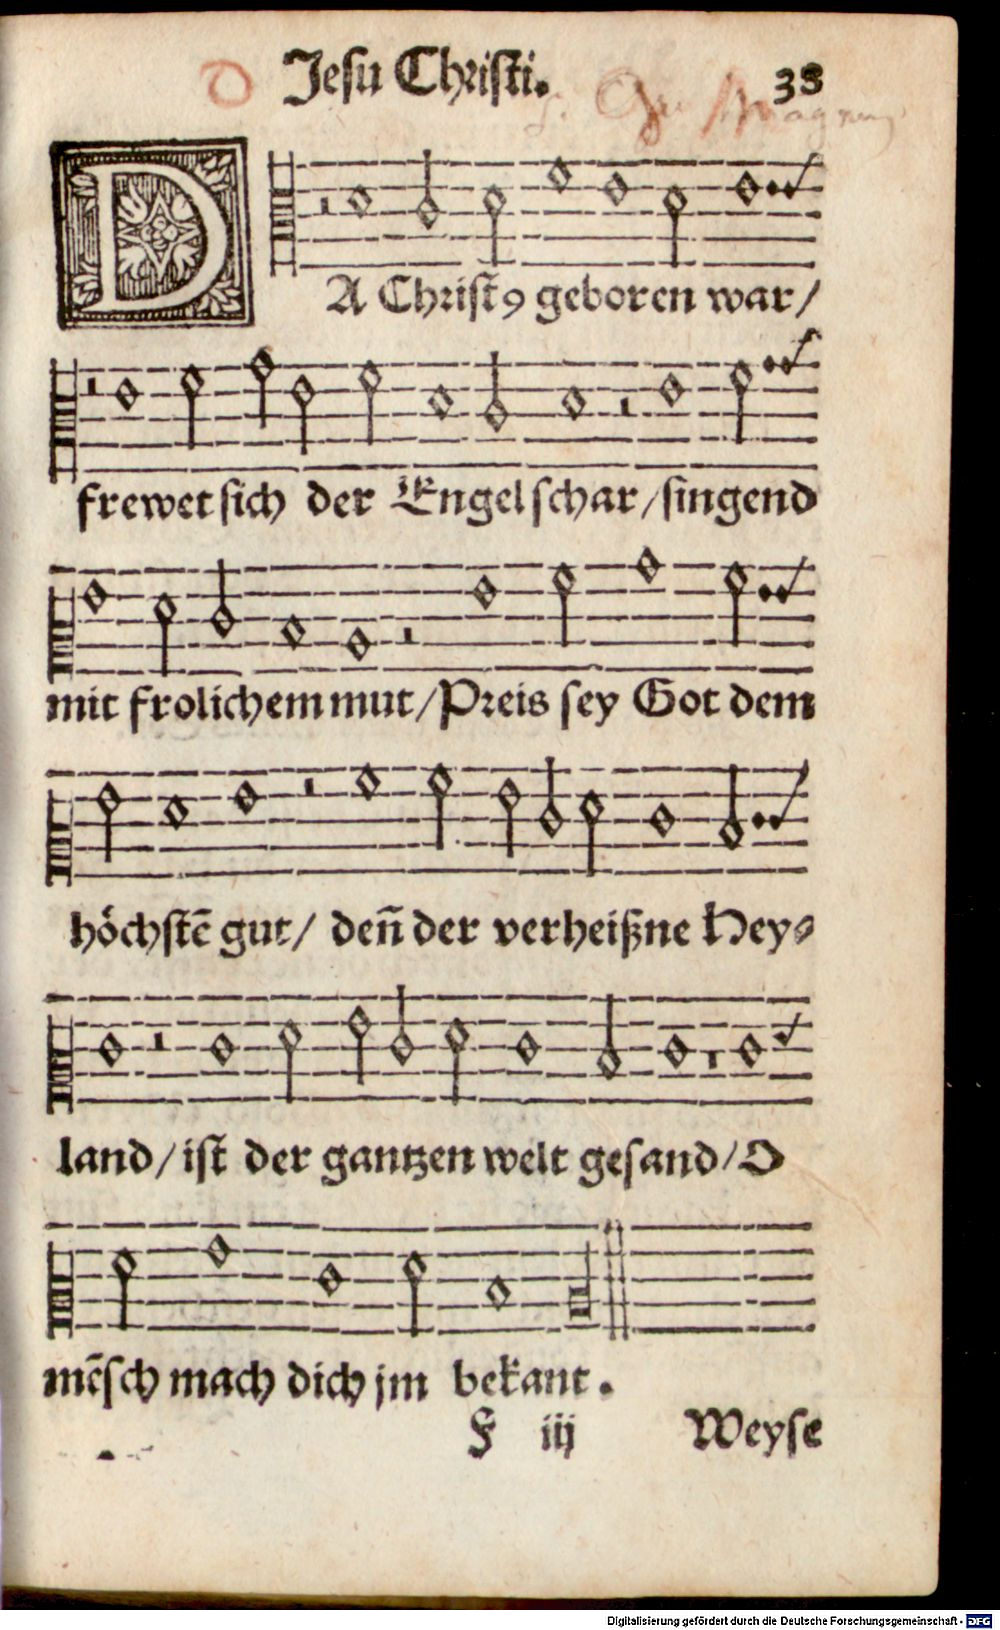 Jesu Christi. 38
DA Christꝰ geboren war/
frewet sich der Engel schar/singend
mit frolichem mut/Preis sey Got dem
höchstē gut/ deñ der verheißne Hey⸗
land/ist der gantzen welt gesand/O
mēsch mach dich jm bekant.
F iij Weyse
Digitalisierung gefördert durch die Deutsche Forschungsgemeinschaft - DFG